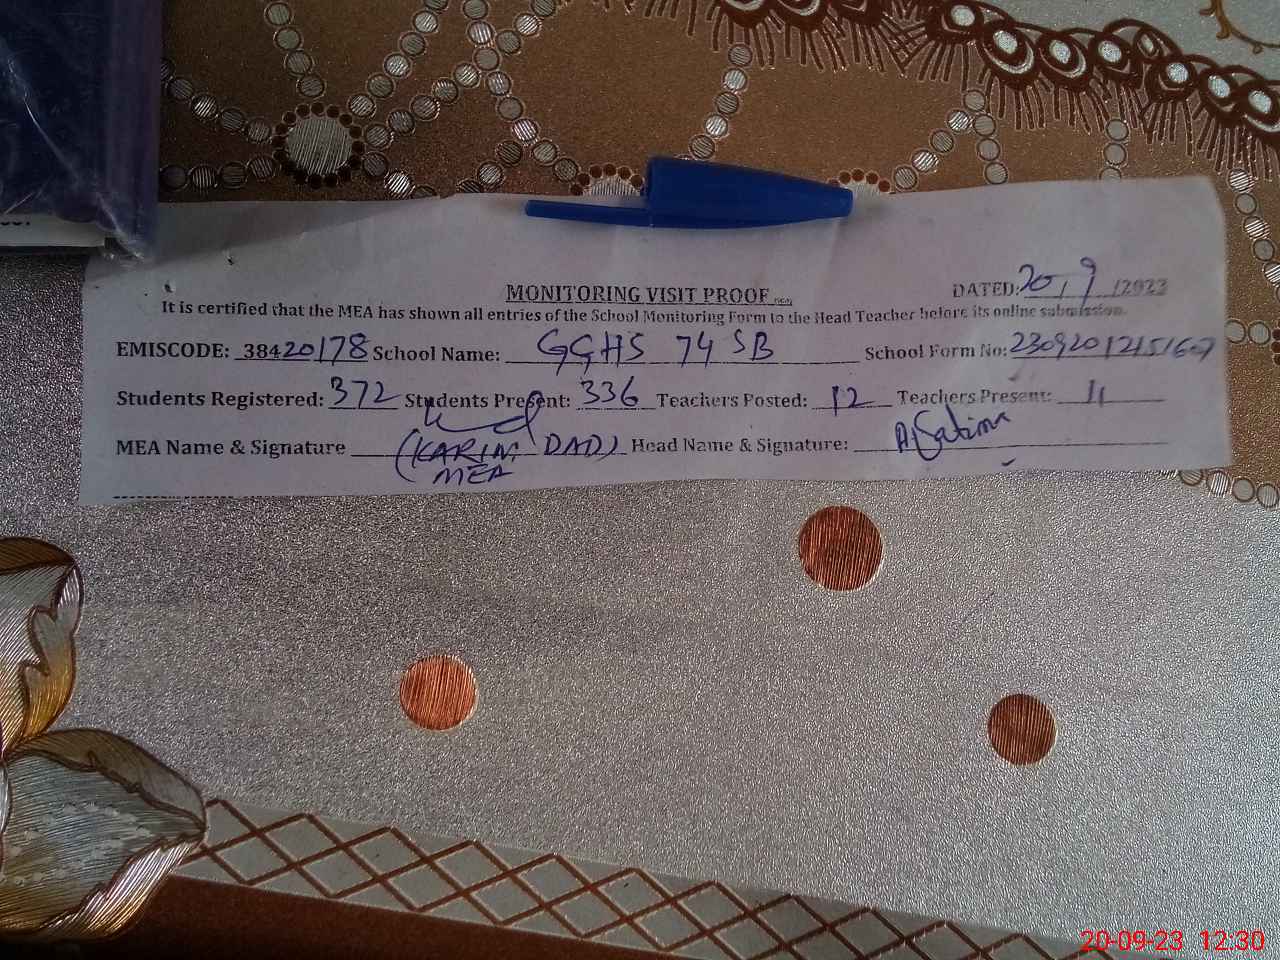 MONITORING VISIT PROOF
DATED: 20, 9 /2023
It is certified that the MEA has shown all entries of the School Monitoring Form to the Head Teacher before its online submission.
EMISCODE: 38420178 School Name: GGHS 74 SB School Form No:
Students Registered: 372 Students Present: 336 Teachers Posted: 12 Teachers Present: 11
MEA Name & Signature (KARIM DAD) Head Name & Signature:
MEA
20-09-23 12:30